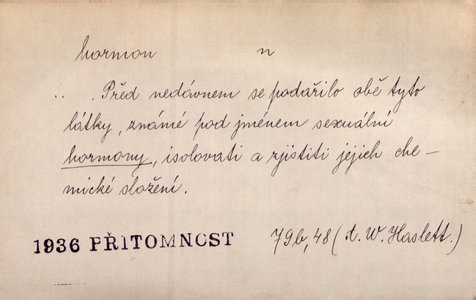 hormon n
.. . Před nedávnem se podařilo obě tyto
látky, známé pod jménem sexuální
hormony, isolovati a zjistiti jejich che-
mické složení.
1936 PŘITOMNOST 79b, 48 (A. W. Haslett.)